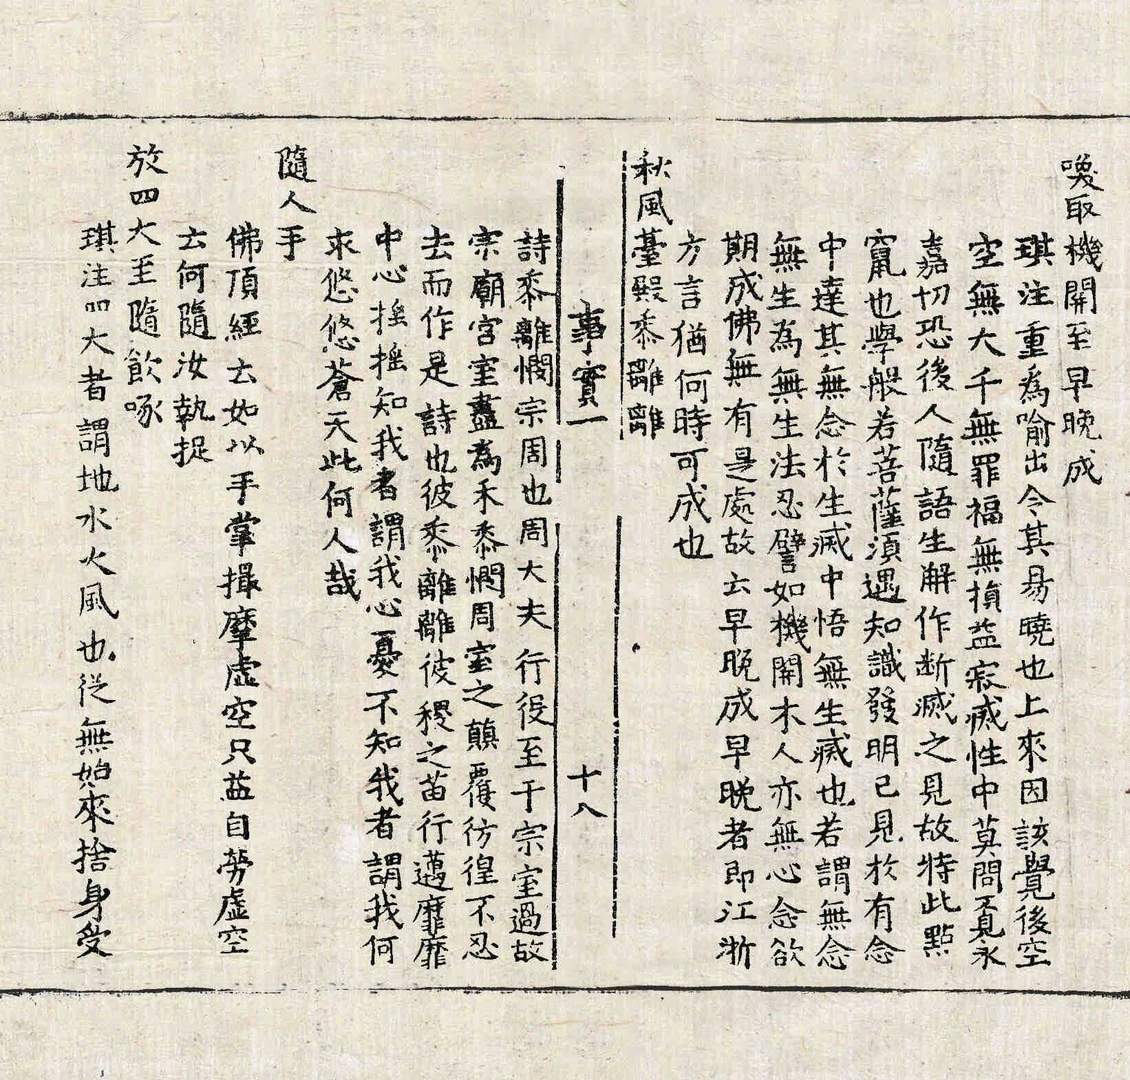 喚取機關至早晚成
琪注重為喻出令其易曉也上來因該覺後空
空無大千無罪福無損益寂滅性中莫問覓永
嘉切恐後人隨語生解作断滅之見故特此點
竄也學般若菩薩須遇知識發明己見於有念
中達其無念於生滅中悟無生滅也若謂無念
無生為無生法忍譬如機關木人亦無心念欲
期成佛無有是處故云早晚成早晚者即江浙
方言猶何時可成也
秋風臺殿黍離離
事實一 十八
詩黍離憫宗周也周大夫行役至于宗室過故
宗廟宮室盡為禾黍憫周室之顛覆彷徨不忍
去而作是詩也彼黍離離彼稷之苗行邁靡靡
中心搖搖知我者謂我心憂不知我者謂我何
求悠悠蒼天此何人哉
隨人手
佛頂經云如以手掌撮摩虛空只益自勞虛空
云何隨汝執捉
放四大至隨飲啄
琪注四大者謂地水火風也從無始來捨身受